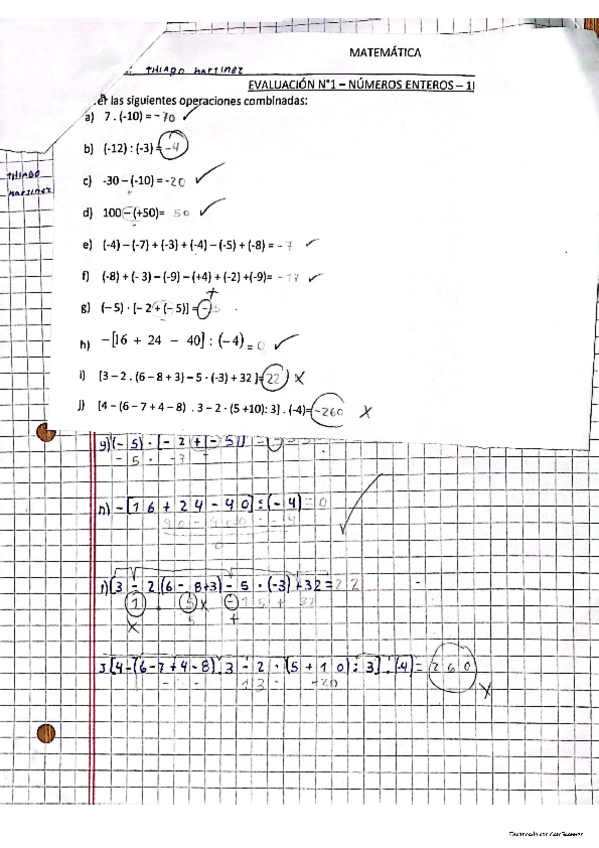 MATEMÁTICA
THIAGO MARTINEZ
EVALUACIÓN N°1 – NÚMEROS ENTEROS – 1
las siguientes operaciones combinadas:
a) 7 . (-10) = -70
b) (-12) : (-3) = -4
THIAGO
MARTINEZ
c) -30 – (-10) = -20
d) 100 – (+50)= 50
e) (-4) – (-7) + (-3) + (-4) – (-5) + (-8) = -7
f) (-8) + (- 3) – (-9) – (+4) + (-2) +(-9)= -17
g) (– 5) · [– 2 + (– 5)] =
h) –[16 + 24 – 40] : (–4) = 0
i) [3 – 2 . (6 – 8 + 3) – 5 · (-3) + 32 ]= 22 x
j) [4 – (6 – 7 + 4 – 8) . 3 – 2 · (5 +10): 3] . (-4)= -260 x
g) (- 5) · [- 2 + (- 5)] =
- 5 · -7
h) -[16 + 24 - 40] : (-4) = 0
0
i) [3 - 2 (6 - 8+3) - 5 · (-3) + 32 = 22
1 · 5 x - 15 + 32
x 5 +
J [4-(6-7+4-8).3 - 2 · (5+10):3] · (-4) = 260
13 -20 x